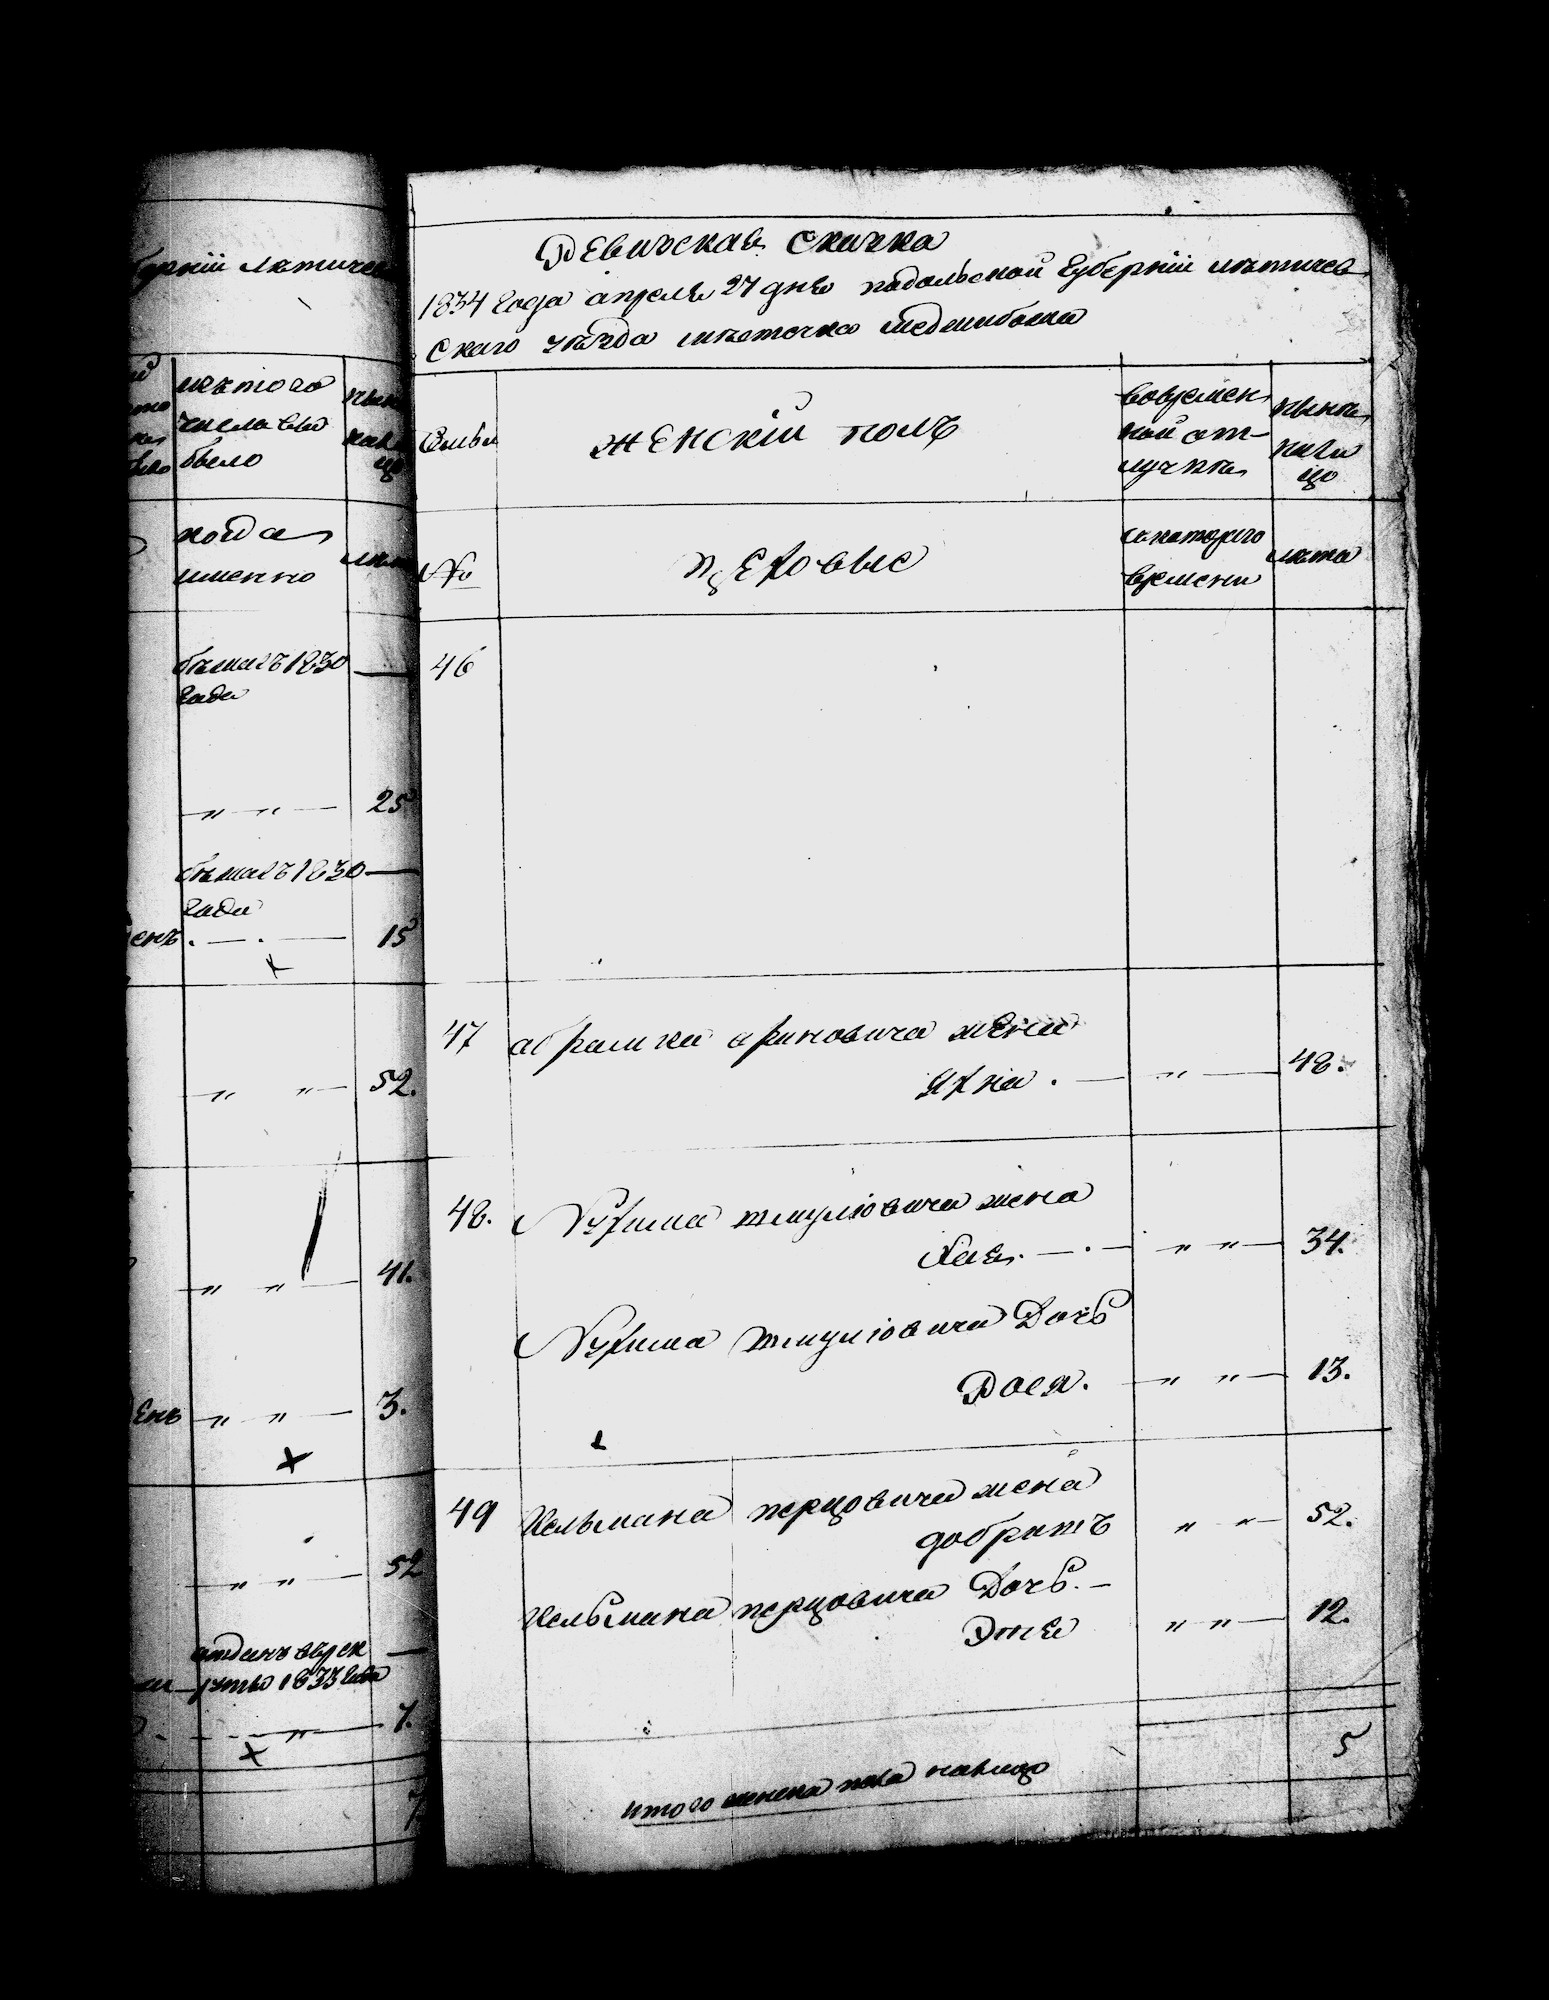 берніи Летичев
изътого
числа вы
было
когда
именно
лета
бѣжалъ 1830
года
" " — 25
бѣжалъ 1830 —
года
енъ . — . — 15
" " — 52.
" " — 41.
день " " — 3.
" " — 52
отданъ врек
руты 1833 года —
" — 7.
Ревизская скаска
1834 года апреля 27 дня подольской губерніи летичев
скаго уезда местечка меджибожа
Семьи
женскій полъ
вовремен
ной от-
лучке
ныне
нали
цо
№
цеховые
скоторого
времени
лета
46
47 абрамка ариновича жена
Яхна . — " — 48.
48. Нухима шмулiовича жена
Хая. — . — " " — 34.
Нухима шмулiовича Дочь
Дося. — " " — 13.
49 Кельмана перцовича жена
добришъ " " — 52.
Кельмана перцовича Дочь. —
Эне " " — 12.
итого женска пола налицо 5